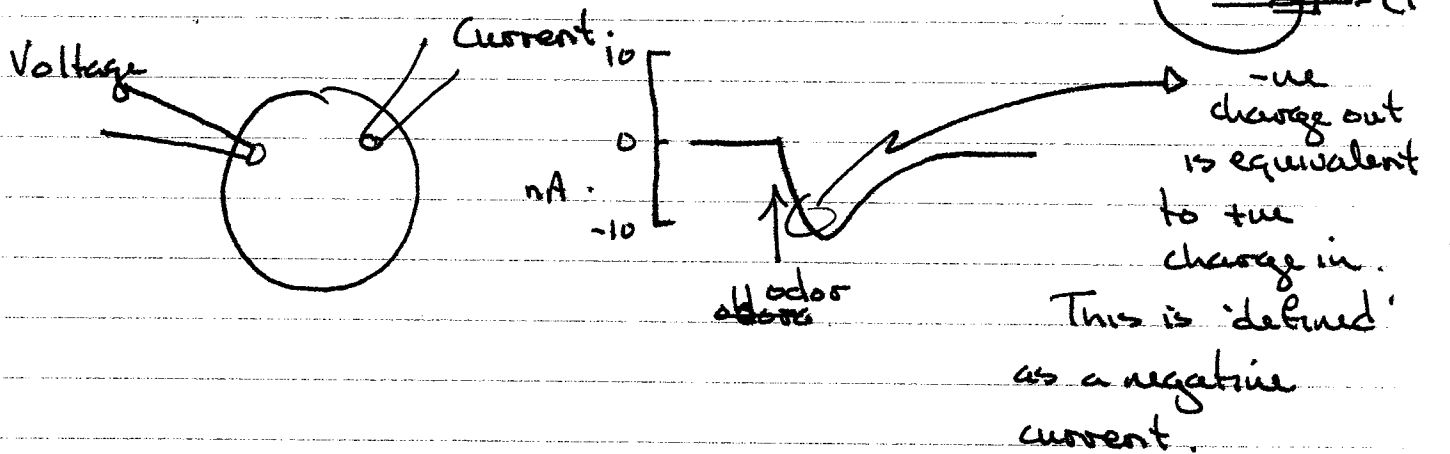 Cl
Current.
Voltage
10
0
nA.
-10
odor
-ve
charge out
is equivalent
to +ve
charge in.
This is 'defined'
as a negative
current.